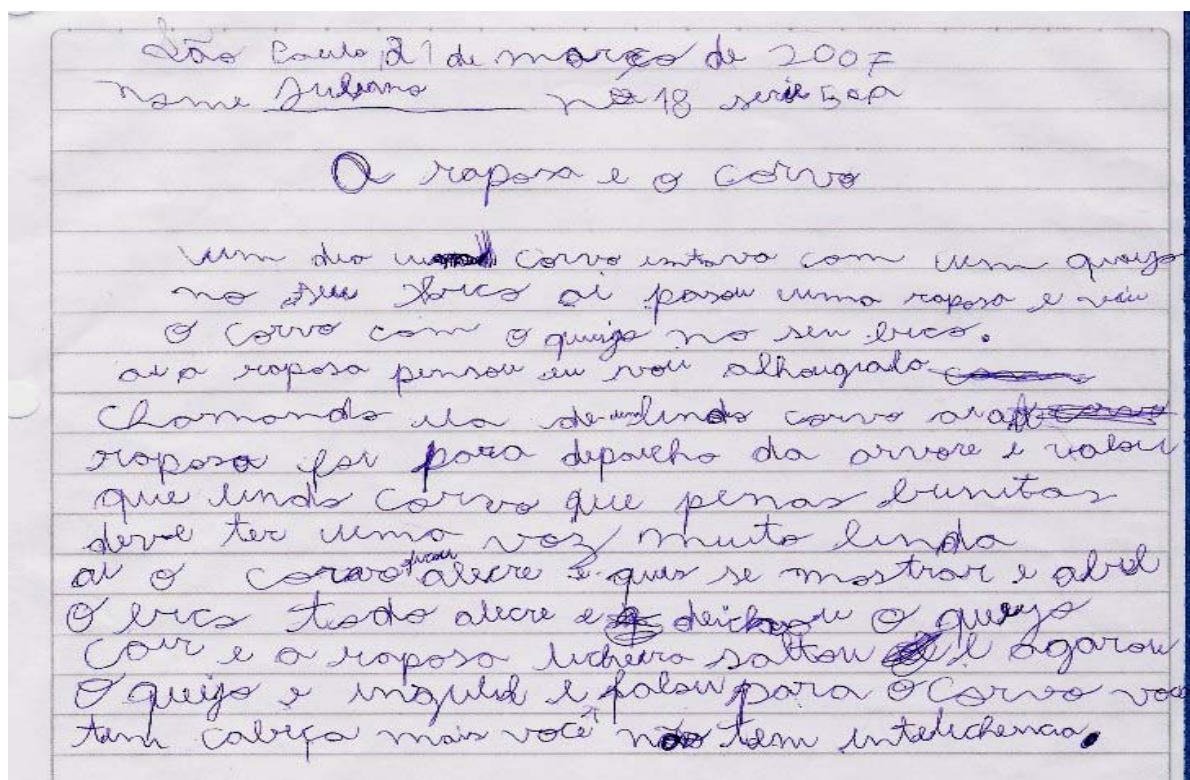 São Paulo, 21 de março de 2007
nome Juliano nº 18 serie 5ªA
A raposa e o corvo
um dia um corvo estava com um queijo
no seu bico ai pasou uma raposa e viu
o corvo com o queijo no seu bico.
ai a raposa pensou eu vou
chamando ela de um lindo corvo ai a
raposa foi para depaicho da arvore e valou
que lindo corvo que penas bunitas
deve ter uma voz muito linda
ai o corvo ficou alecre e quis se mostrar e abril
o bico todo alecre e deichou o queijo
cair e a raposa licheira saltou e agarou
o queijo e ingulil e falou para o corvo voce
tem cabeça mais você não tem intelichencia.